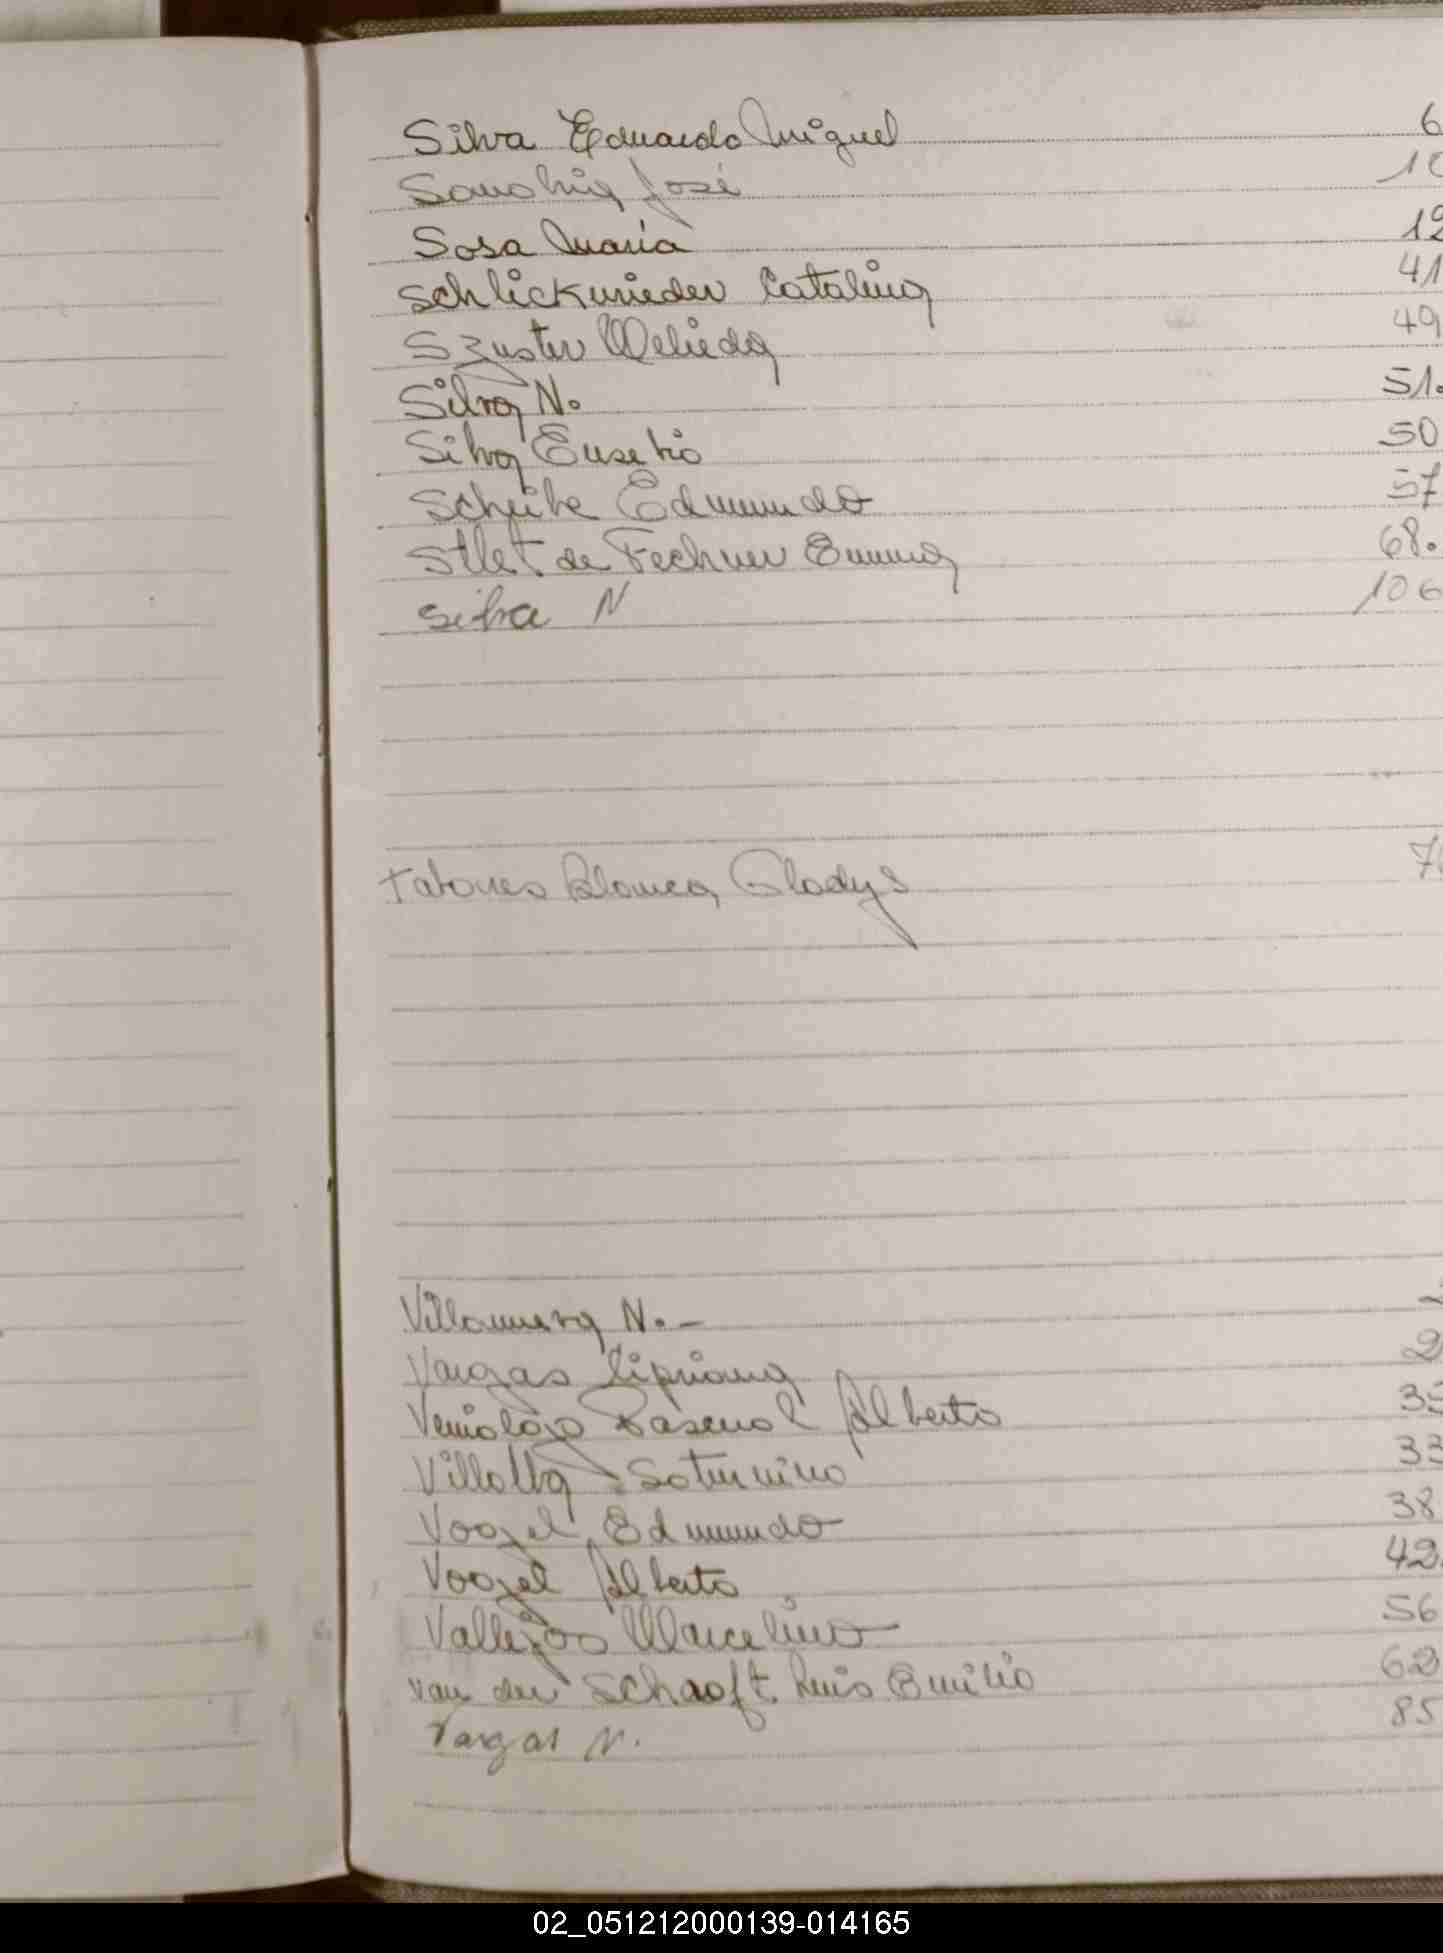 Silva Eduardo Miguel 6
José 10
Sosa Maria 12
Schlickmieder Catalina 41
Szuster Melieda 49
Silva N. 51.
Silva Eusebio 50
Scheibe Edmundo 57
Stlet de Fechner Emma 68.
Silva N 106
Tabares Blanca Gladys 7
Villamura N.-
Vargas Cipriana 2
Alberto 33
Villalba Saturnino 33
Voogel Edmundo 38
Voogel Alberto 42.
Vallejos Marcelino 56
Van der Schaaft Luis Emilio 62
Vargas N. 85
02_051212000139-014165